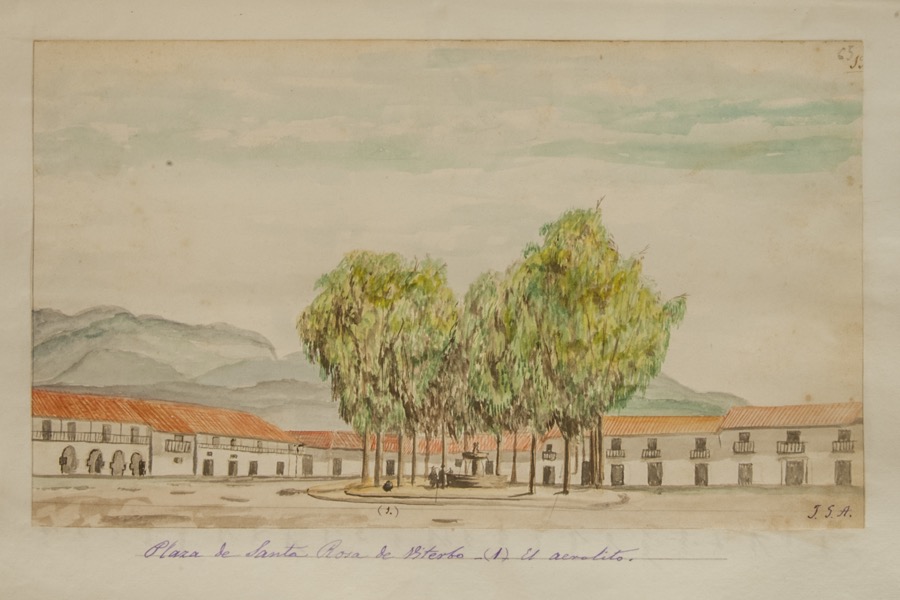 63
(1.)
J. G. A.
Plaza de Santa Rosa de Viterbo (1) El aerolito.